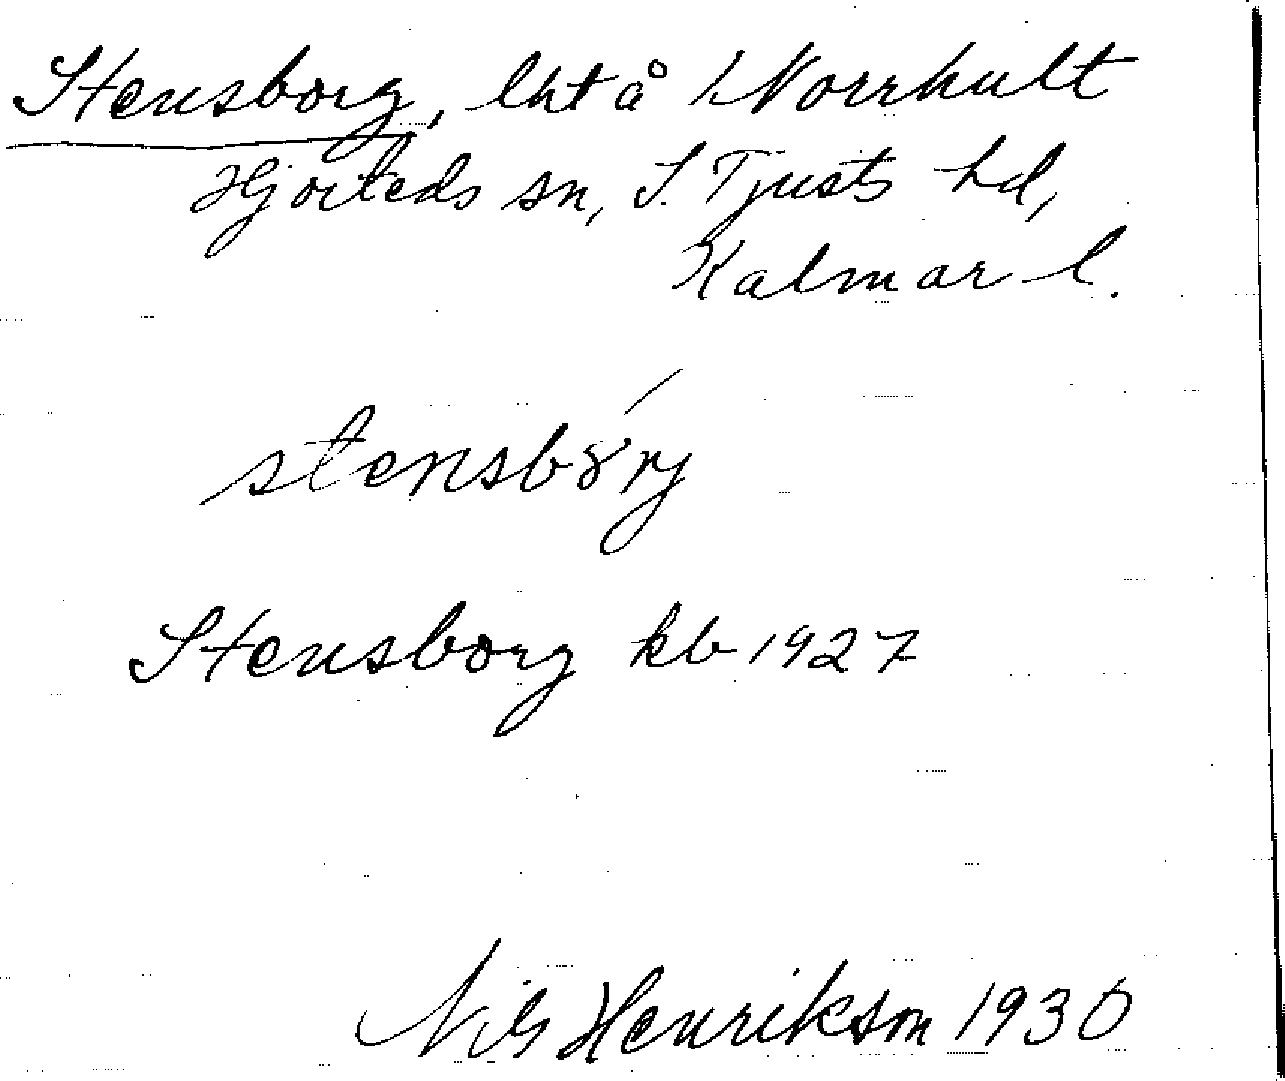 Stensborg, lht å Norrhult
Hjorteds sn, S. Tjusts hd,
Kalmar l.
Stensborg kb 1927
Nils Henrikson 1930